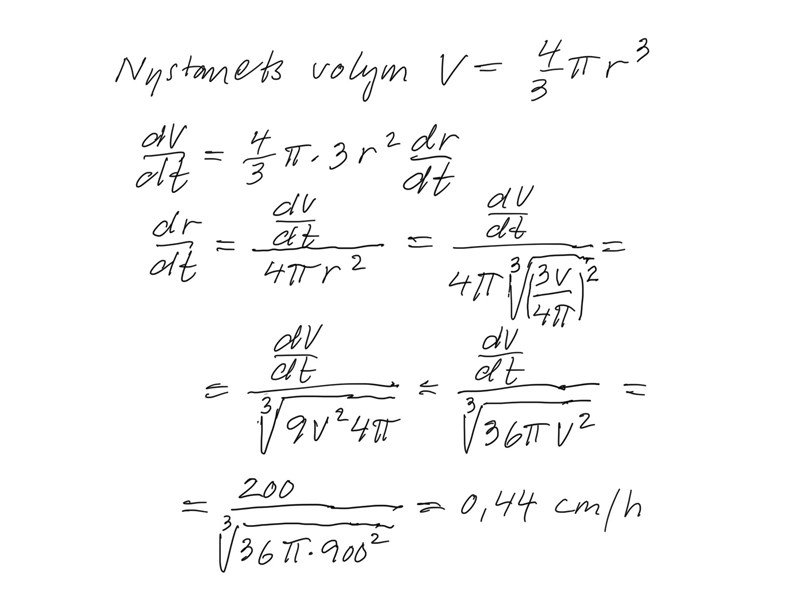 Nystanets volym V = 4/3 π r³
dV/dt = 4/3 π · 3r² dr/dt
dr/dt = (dV/dt)/(4πr²) = (dV/dt)/(4π ∛(3V/4π)²) =
= (dV/dt)/∛(9V²4π) = (dV/dt)/∛(36πV²) =
= 200/∛(36π·900²) = 0,44 cm/h